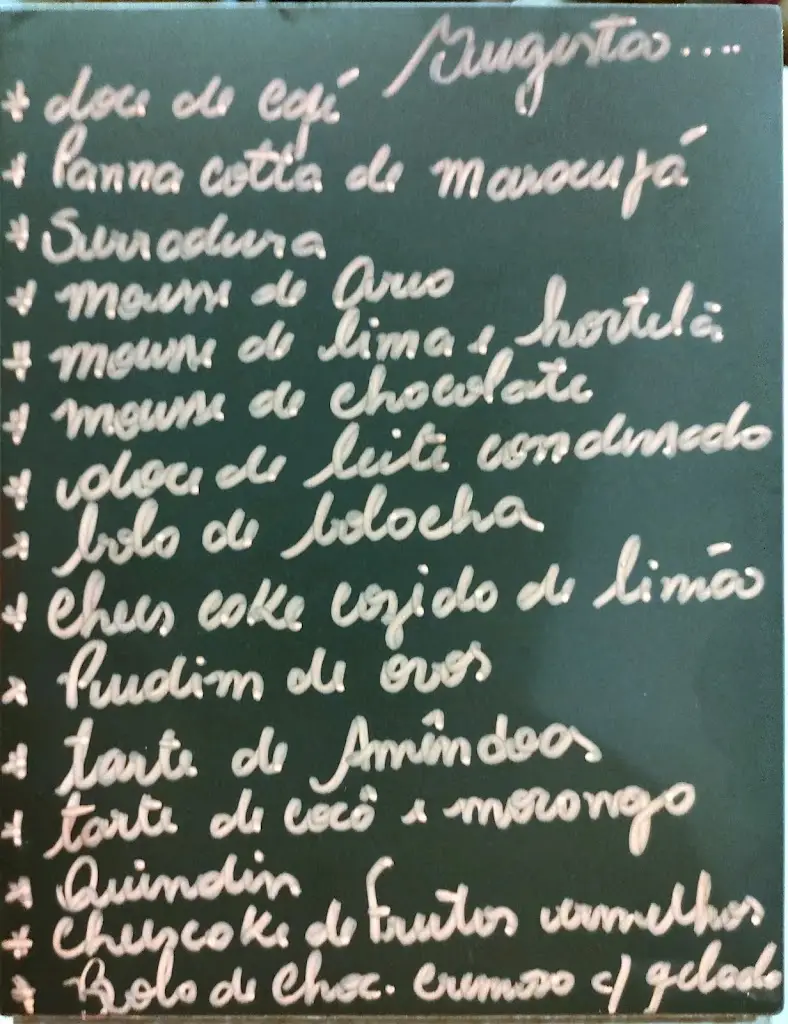 Augusta....
* doce de café
* Panna cotta de maracujá
* Serradura
* mousse de Oreo
* mousse de lima e hortelã
* mousse de chocolate
* doce de leite condensado
* bolo de bolacha
* chees cake cozido de limão
* Pudim de ovos
* tarte de Amêndoas
* tarte de cocô e morango
* Quindin
* cheescake de Frutos vermelhos
* Bolo de choc. cremoso c/ gelado